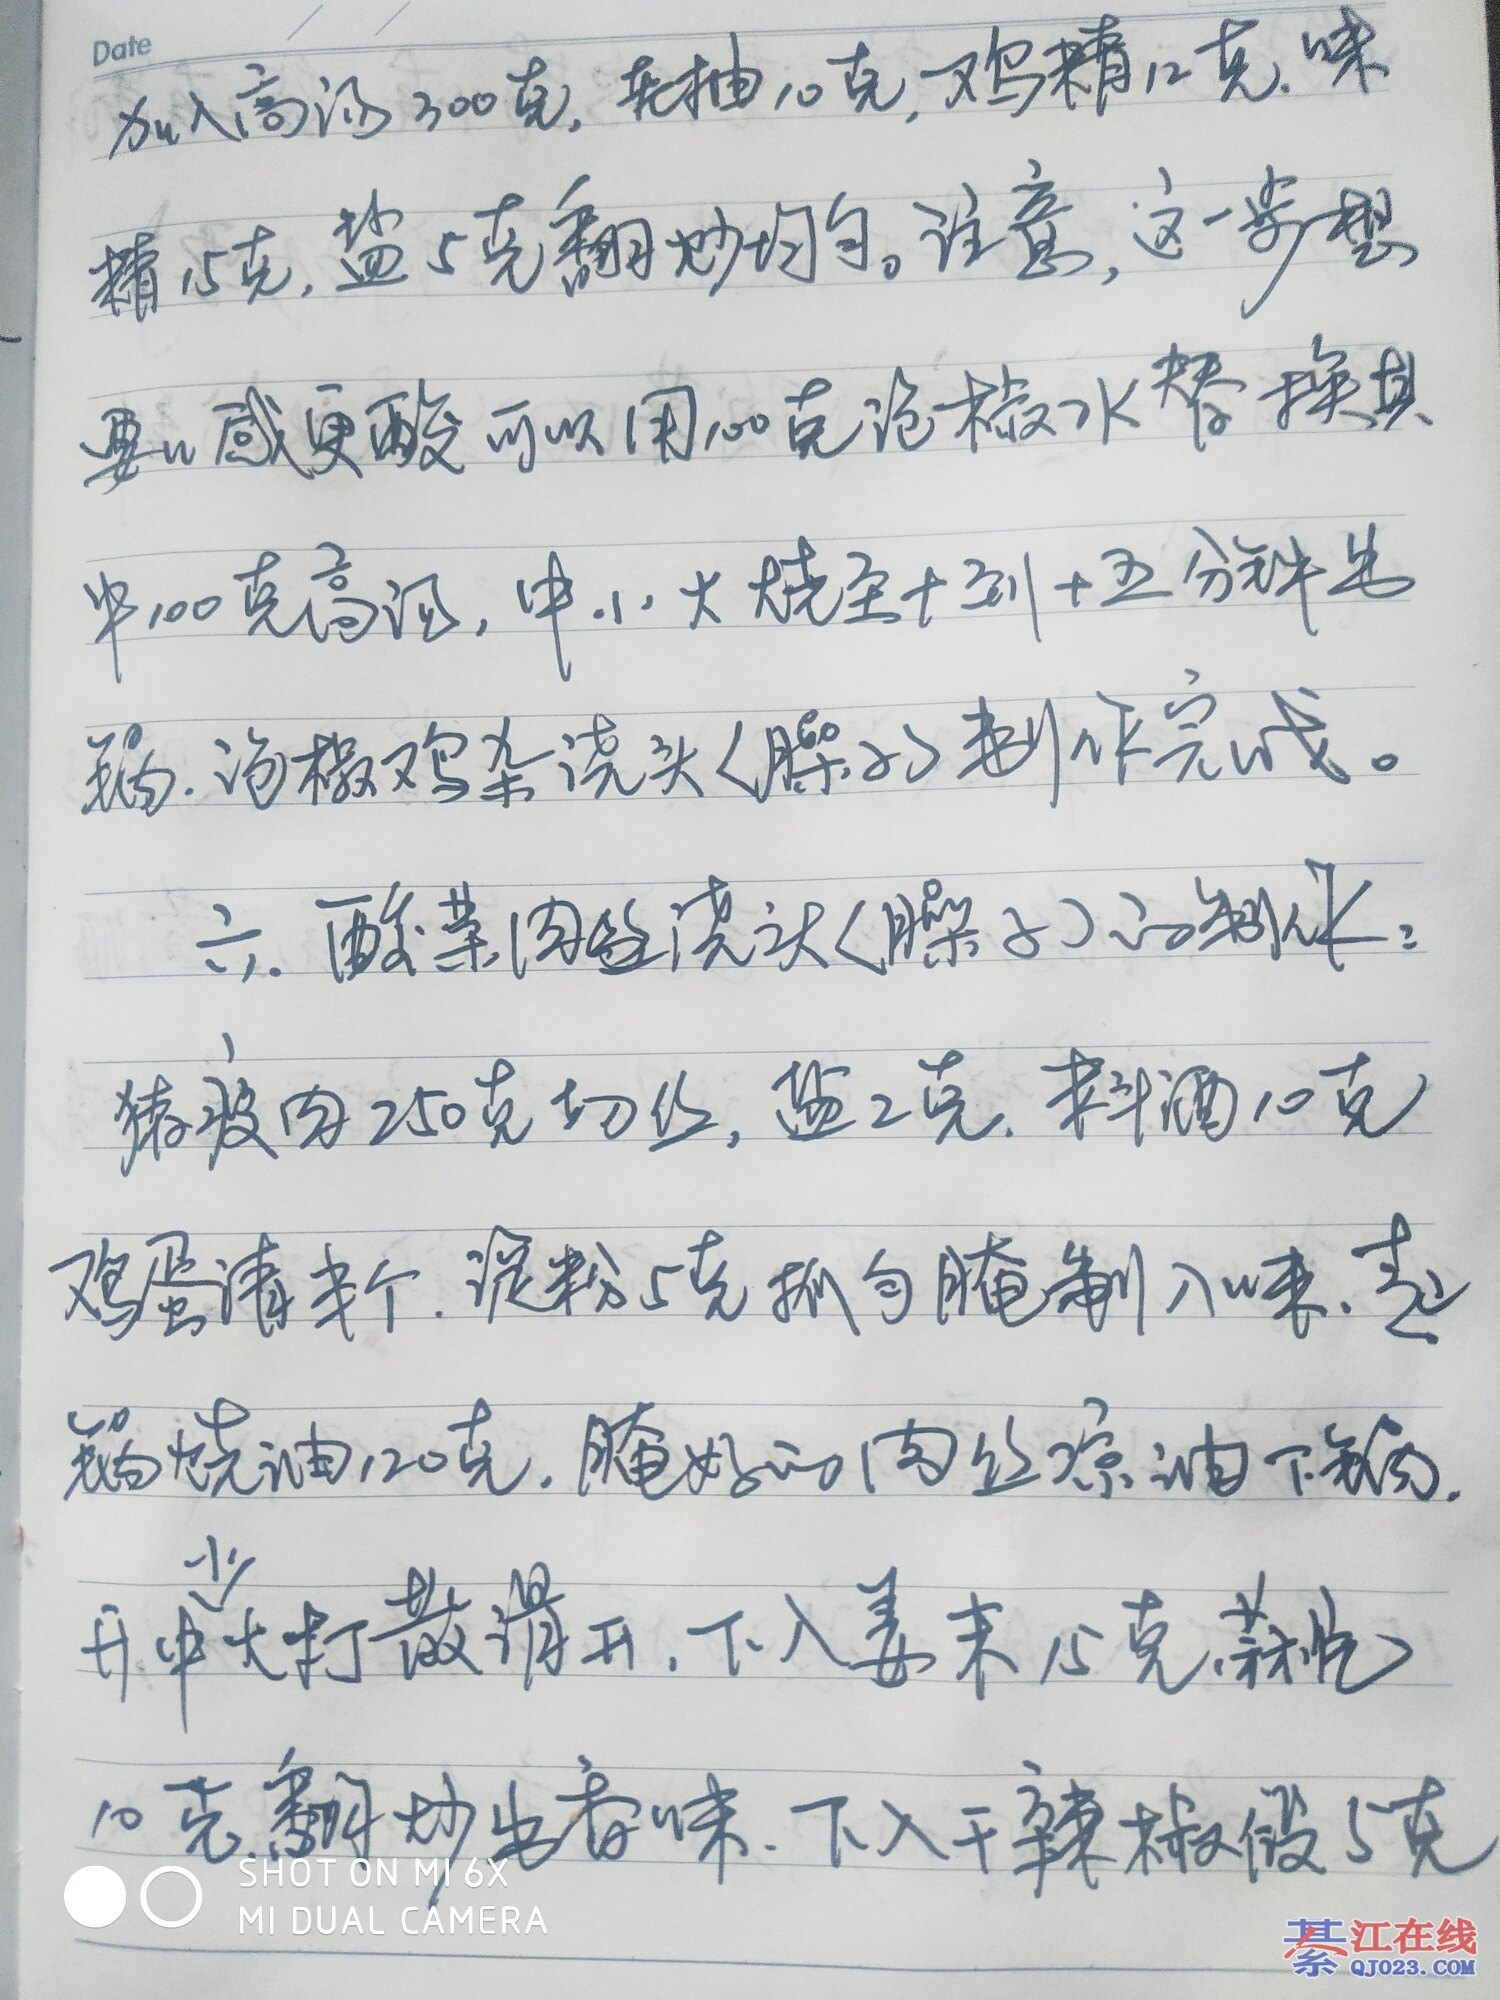 Date
加入高汤300克，老抽10克，鸡精12克，味
精15克，盐5克翻炒均匀。注意，这一步想
要口感更酸可以用100克泡椒水替换其
中100克高汤，中小火烧至十到十五分钟出
锅，泡椒鸡杂浇头（臊子）制作完成。
六、酸菜肉丝浇头（臊子）的制作：
猪瘦肉250克切丝，盐2克，料酒10克
鸡蛋清半个，淀粉5克抓匀腌制入味，起
锅烧油120克，腌好的肉丝凉油下锅，
开中小火打散滑开，下入姜末15克，蒜
10克，翻炒出香味，下入干辣椒段5克
SHOT ON MI 6X
MI DUAL CAMERA
綦江在线
QJ023.COM